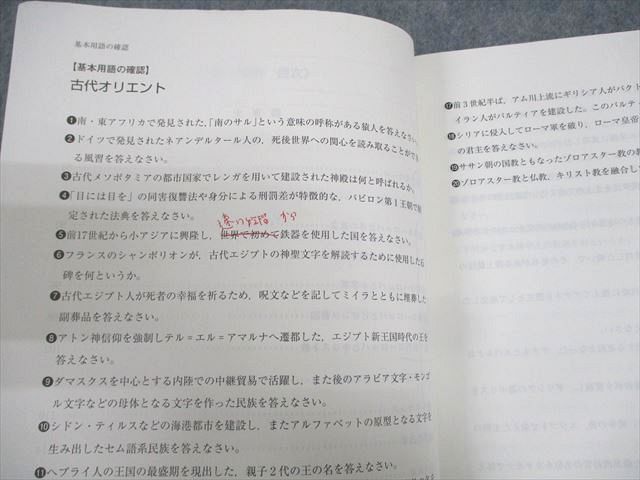 基本用語の確認
【基本用語の確認】
古代オリエント
❶南・東アフリカで発見された,「南のサル」という意味の呼称がある猿人を答えなさい。
❷ドイツで発見されたネアンデルタール人の,死後世界への関心を読み取ることができ
る風習を答えなさい。
❸古代メソポタミアの都市国家でレンガを用いて建設された神殿は何と呼ばれるか。
❹「目には目を」の同害復讐法や身分による刑罰差が特徴的な,バビロン第Ⅰ王朝で制
定された法典を答えなさい。
❺前17世紀から小アジアに興隆し,世界で初めて鉄器を使用した国を答えなさい。
❻フランスのシャンポリオンが,古代エジプトの神聖文字を解読するために使用した石
碑を何というか。
❼古代エジプト人が死者の幸福を祈るため,呪文などを記してミイラとともに埋葬した
副葬品を答えなさい。
❽アトン神信仰を強制しテル=エル=アマルナへ遷都した,エジプト新王国時代の王を
答えなさい。
❾ダマスクスを中心とする内陸での中継貿易で活躍し,また後のアラビア文字・モンゴ
ル文字などの母体となる文字を作った民族を答えなさい。
❿シドン・ティルスなどの海港都市を建設し,またアルファベットの原型となる文字を
生み出したセム語系民族を答えなさい。
⓫ヘブライ人の王国の最盛期を現出した,親子2代の王の名を答えなさい。
⓱前3世紀半ば,アム川上流にギリシア人がバクト
イラン人がパルティアを建設した。このパルティ
⓲シリアに侵入してローマ軍を破り,ローマ皇帝
の君主を答えなさい。
⓳ササン朝の国教ともなったゾロアスター教の教
⓴ゾロアスター教と仏教,キリスト教を融合し